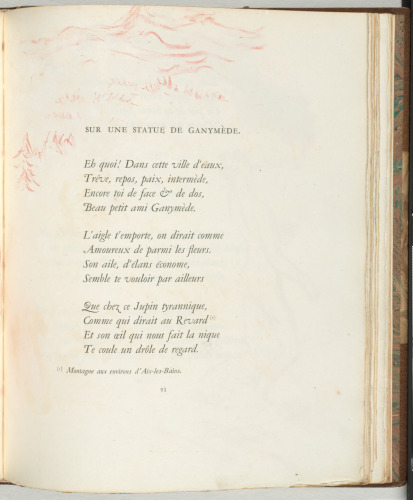 SUR UNE STATUE DE GANYMÈDE.
Eh quoi! Dans cette ville d'eaux,
Trêve, repos, paix, intermède,
Encore toi de face & de dos,
Beau petit ami Ganymède.
L'aigle t'emporte, on dirait comme
Amoureux de parmi les fleurs.
Son aile, d'élans économe,
Semble te vouloir par ailleurs
Que chez ce Jupin tyrannique,
Comme qui dirait au Revard (1)
Et son œil qui nous fait la nique
Te coule un drôle de regard.
(1) Montagne aux environs d'Aix-les-Bains.
93